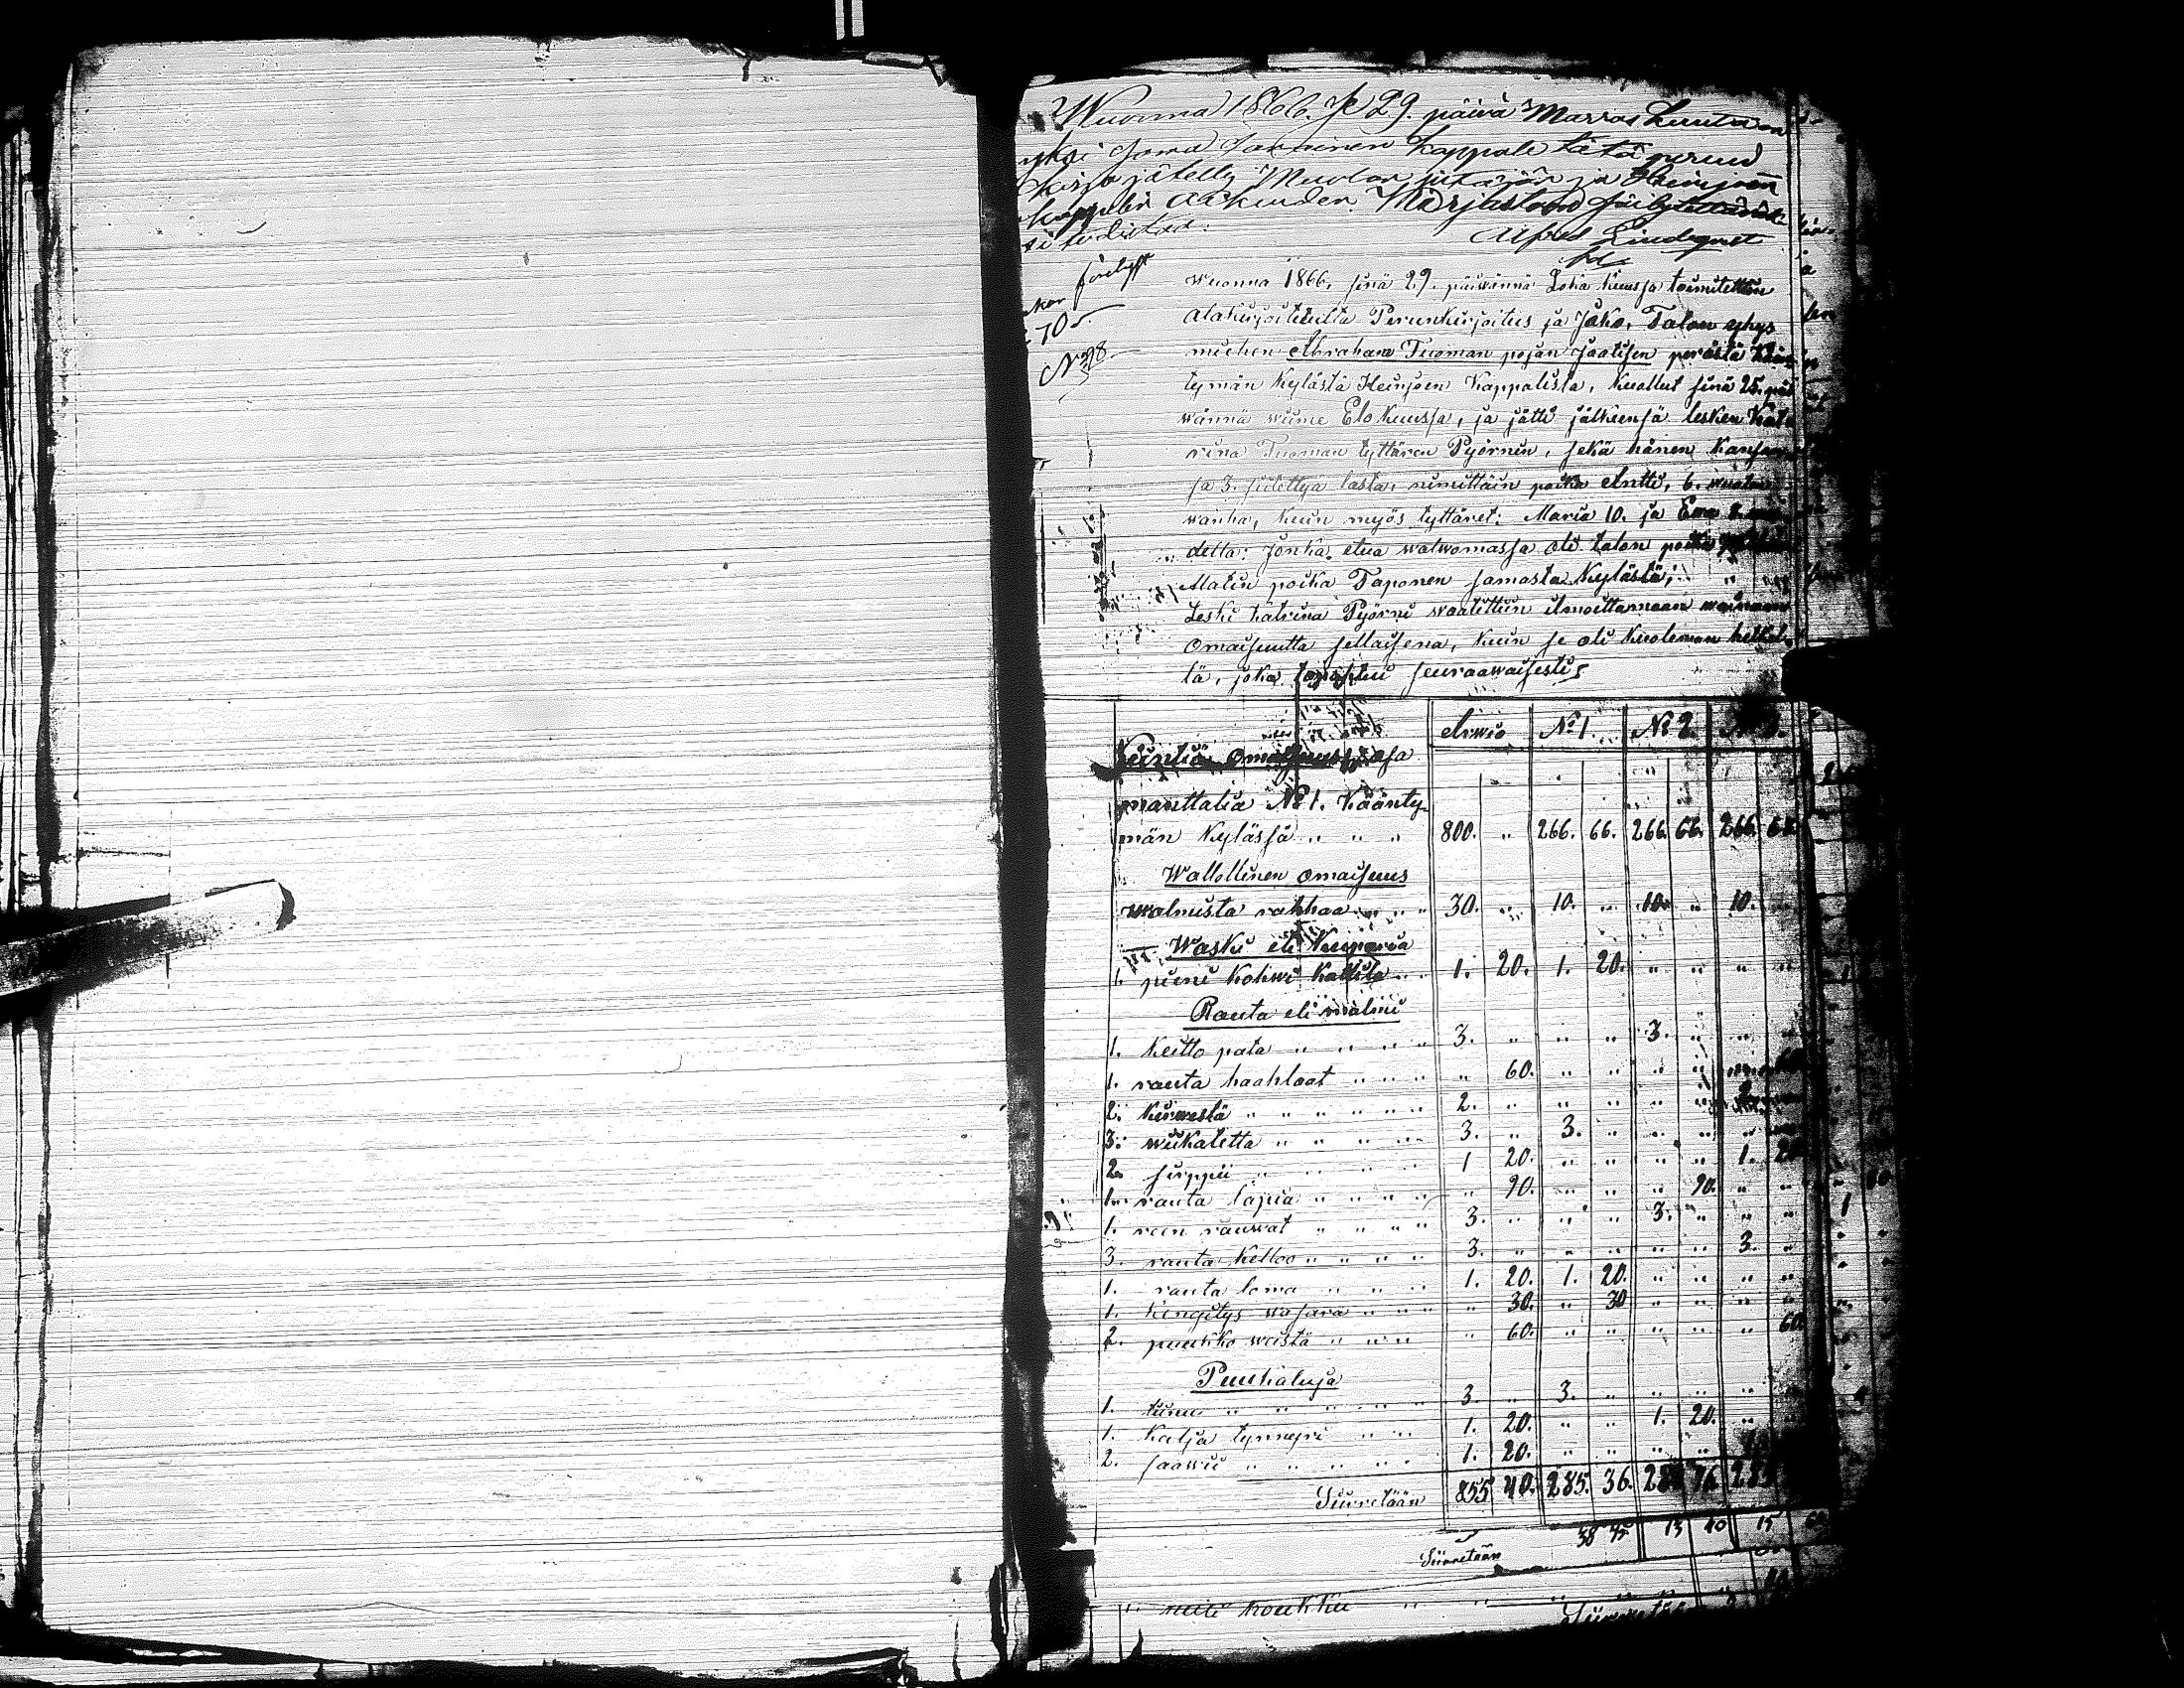 Wuonna 1866. Je 29. päivä Marras kuuta on
yksi sama kappale tätä perun
kirja jätetty Muolan pitäjän ja Heinjoen
kappelin Kirjastoon säilytettäväk-
si todistaa.
Alfred Lindqvist
förelyft
70
No 28
wuonna 1866, sinä 29. päiwännä Loka kuussa toimitettiin
alakirjoitetulta Perunkirjoitus ja Jako, Talon
miehen Abraham Tuoman pojan Jaatisen perästä Kään
tymän kylästä Heinjoen Kappelista, kuollut sinä 25. päi
wännä wiime Elo kuussa, ja jätti jälkeensä lesken Kat
rina Tuoman tyttären Pyörnin, sekä hänen kansan
sa 3. siitettyä lasta, nimittäin poika Antti, 6. wuotta
wanha, kuin myös tyttäret: Maria 10. ja Ewa 2.
detta: Jonka etua walwomassa oli talon poika
Matin poika Taponen samasta kylästä;
Leski Katrina Pyörni waatittiin ilmoittamaan wainaan
omaisuutta sellaisena, kuin se oli kuoleman hetkel
lä, joka tapahtui seuraawaisesti:
Arwio No 1. No 2. No 3.
Kiintiä omaisuus
manttalia No 1. Käänty-
män kylässä " " " 800. " 266. 66. 266. 66. 266. 68.
Wallollinen omaisuus
walmista rahhaa " " 30. " 10. " 10. " 10. "
Waski eli kuparia
1. pieni kohwi kattila " 1. 20. 1. 20. " " " "
Rauta eli malmi
1. keitto pata " " " " 3. " " " 3. " " "
1. rauta haahlaat " " " " 60. " " " " " 60.
2. kirwestä " " " " " " 2. " " " " " 2. "
3. wiikatetta " " " " 3. " 3. " " " " "
2. sirppii " " " " 1 20. " " " " 1. 20
1. rauta lapia " " " " " 90. " " " 90. " "
1. reen rauwat " " " " 3. " " " 3. " " "
3. rauta kelloo " " " " 3. " " " " " 3. "
1. rauta loma " " " 1. 20. 1. 20. " " " "
1. kengitys wasara " " " " 30. " 30 " " " "
2. puukko weistä " " " " 60. " " " " " 60.
Puukaluja
1. tiinu " " " " " 3. " 3. " " " " "
1. kalja tynnyri " " 1. 20. " " 1. 20. " "
2. saawii " " " " " 1. 20. " " " "
Siirretään 855 40. 285. 36. 284 76
Siirretään 38 75 13 40 15 60
" niili koukku " " " " "
Siirretään